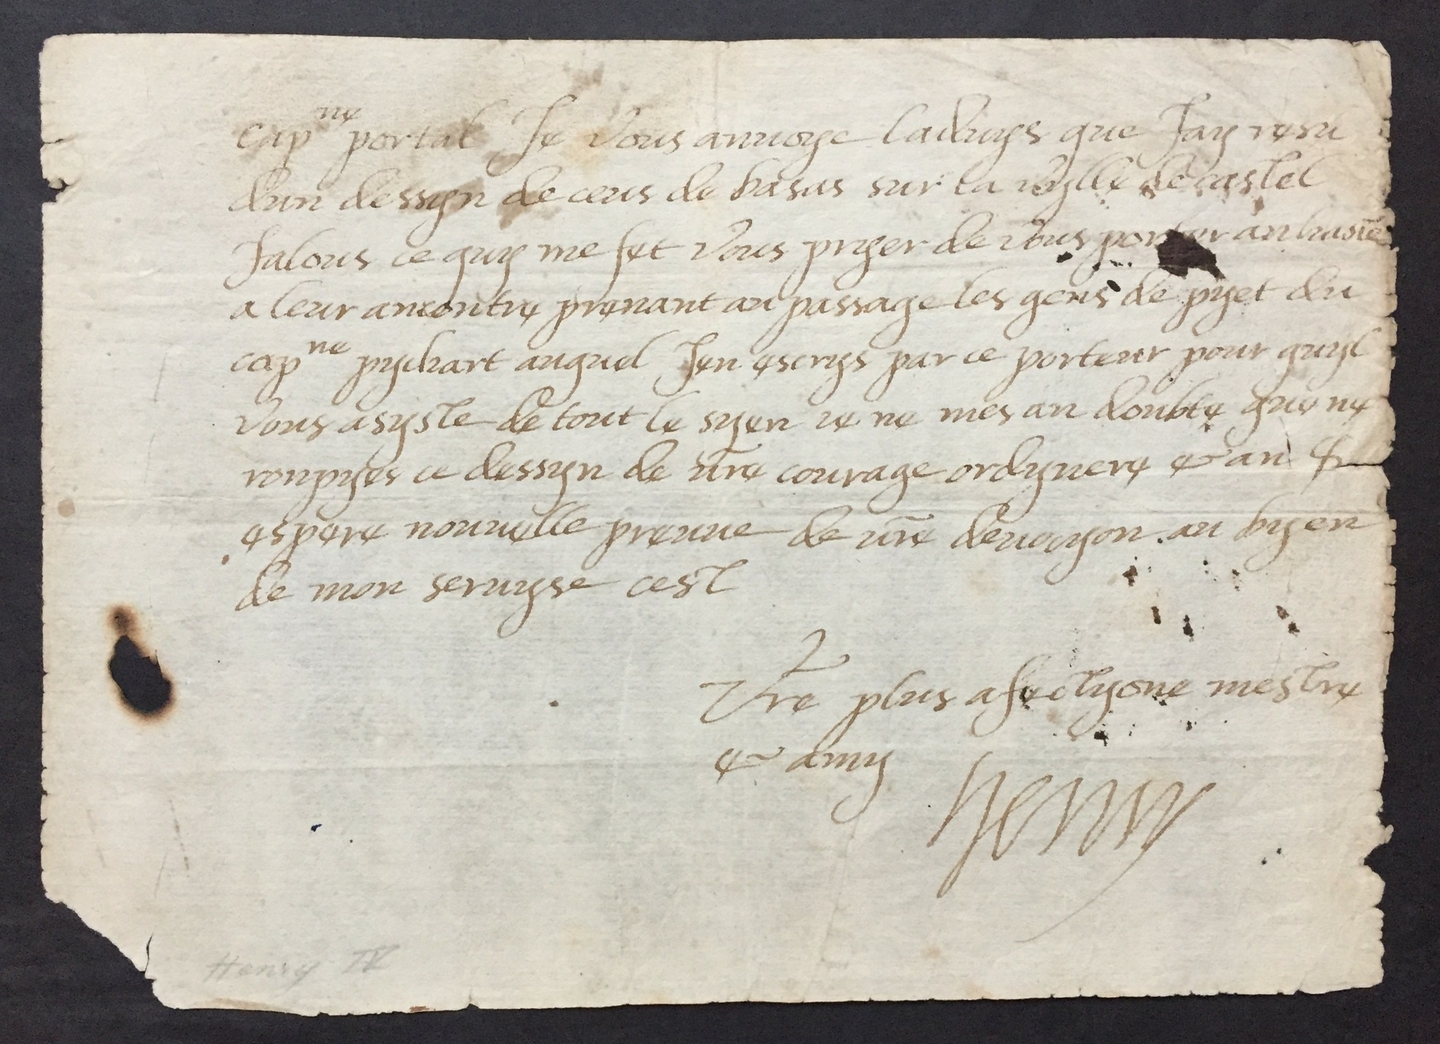 cap^ne portal Je vous anvoye ladvys que Jay resu
dun dessyn de ceus de basas sur la vylle de castel
Jalous ce quy me fet vous pryer de vous porter an haste
a leur ancontre prenant au passage les gens de pyet du
cap^ne pychart auquel Jen escrys par ce porteur pour quyl
vous asyste de tout le syen je ne mes an doubte que ne
ronpyes ce dessyn de vr̃e courage ordynere & an
espere nouvelle preuve de vr̃e devocyon au byen
de mon servyse cest
Vre plus afectyone mestre
& amy Henry
Henry IV